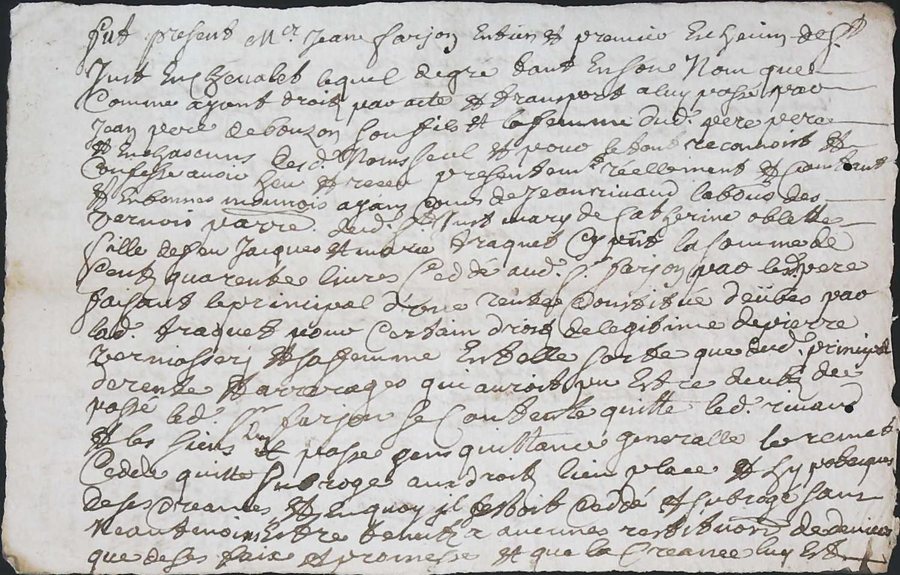 fut present Mer Jean farjon
Just En Chevalet lequel de gré tant En son Nom que
Comme ayant droit par acte et transport a luy passé par
Jean pere de bouzon son fils et la femme dud. pere pere
et En chascuns desd. Noms seul et pour le tout reconnoit et
Confesse avoir heu et receu presentemt réellement et Contant
et En bonnes monnois ayant cours de Jean rivaud
vernois parre. dud. St Just mary de Catherine oblette
fille de feu Jacques et marie traquet la somme de
Cent quarente livres Ceddé aud. Sr farjon par led. pere
faisant le principal d'une rente Constitué deübes par
lad. traquet pour Certain droit de legitime de pierre
et sa femme En telle sorte que dud. principal
de rente et arrerages qui auroit pu Estre deubt de
passé led. Sr farjon se Contente quitte led. rivaud
et les siens et passe quittance generalle
Cedde quitte subroge au droit lieu place et hypoteques
de ses Creances et En quoy il Estoit Ceddé et subrogé sans
Neantmoins Estre tenu a aucunes restitutions de deniers
que de ses faix et promesse et que la Creance luy Est